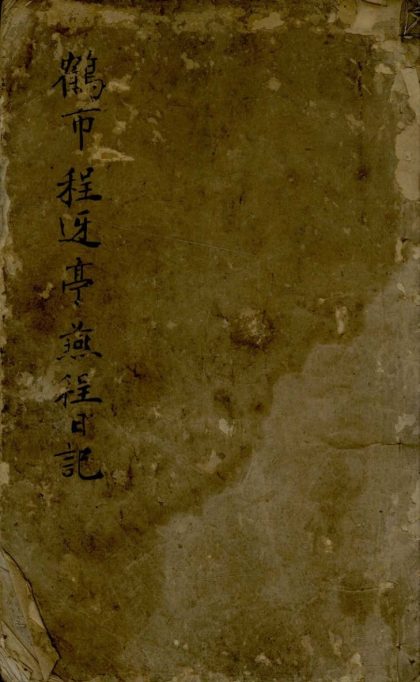 鶴市程迓亭燕程日記